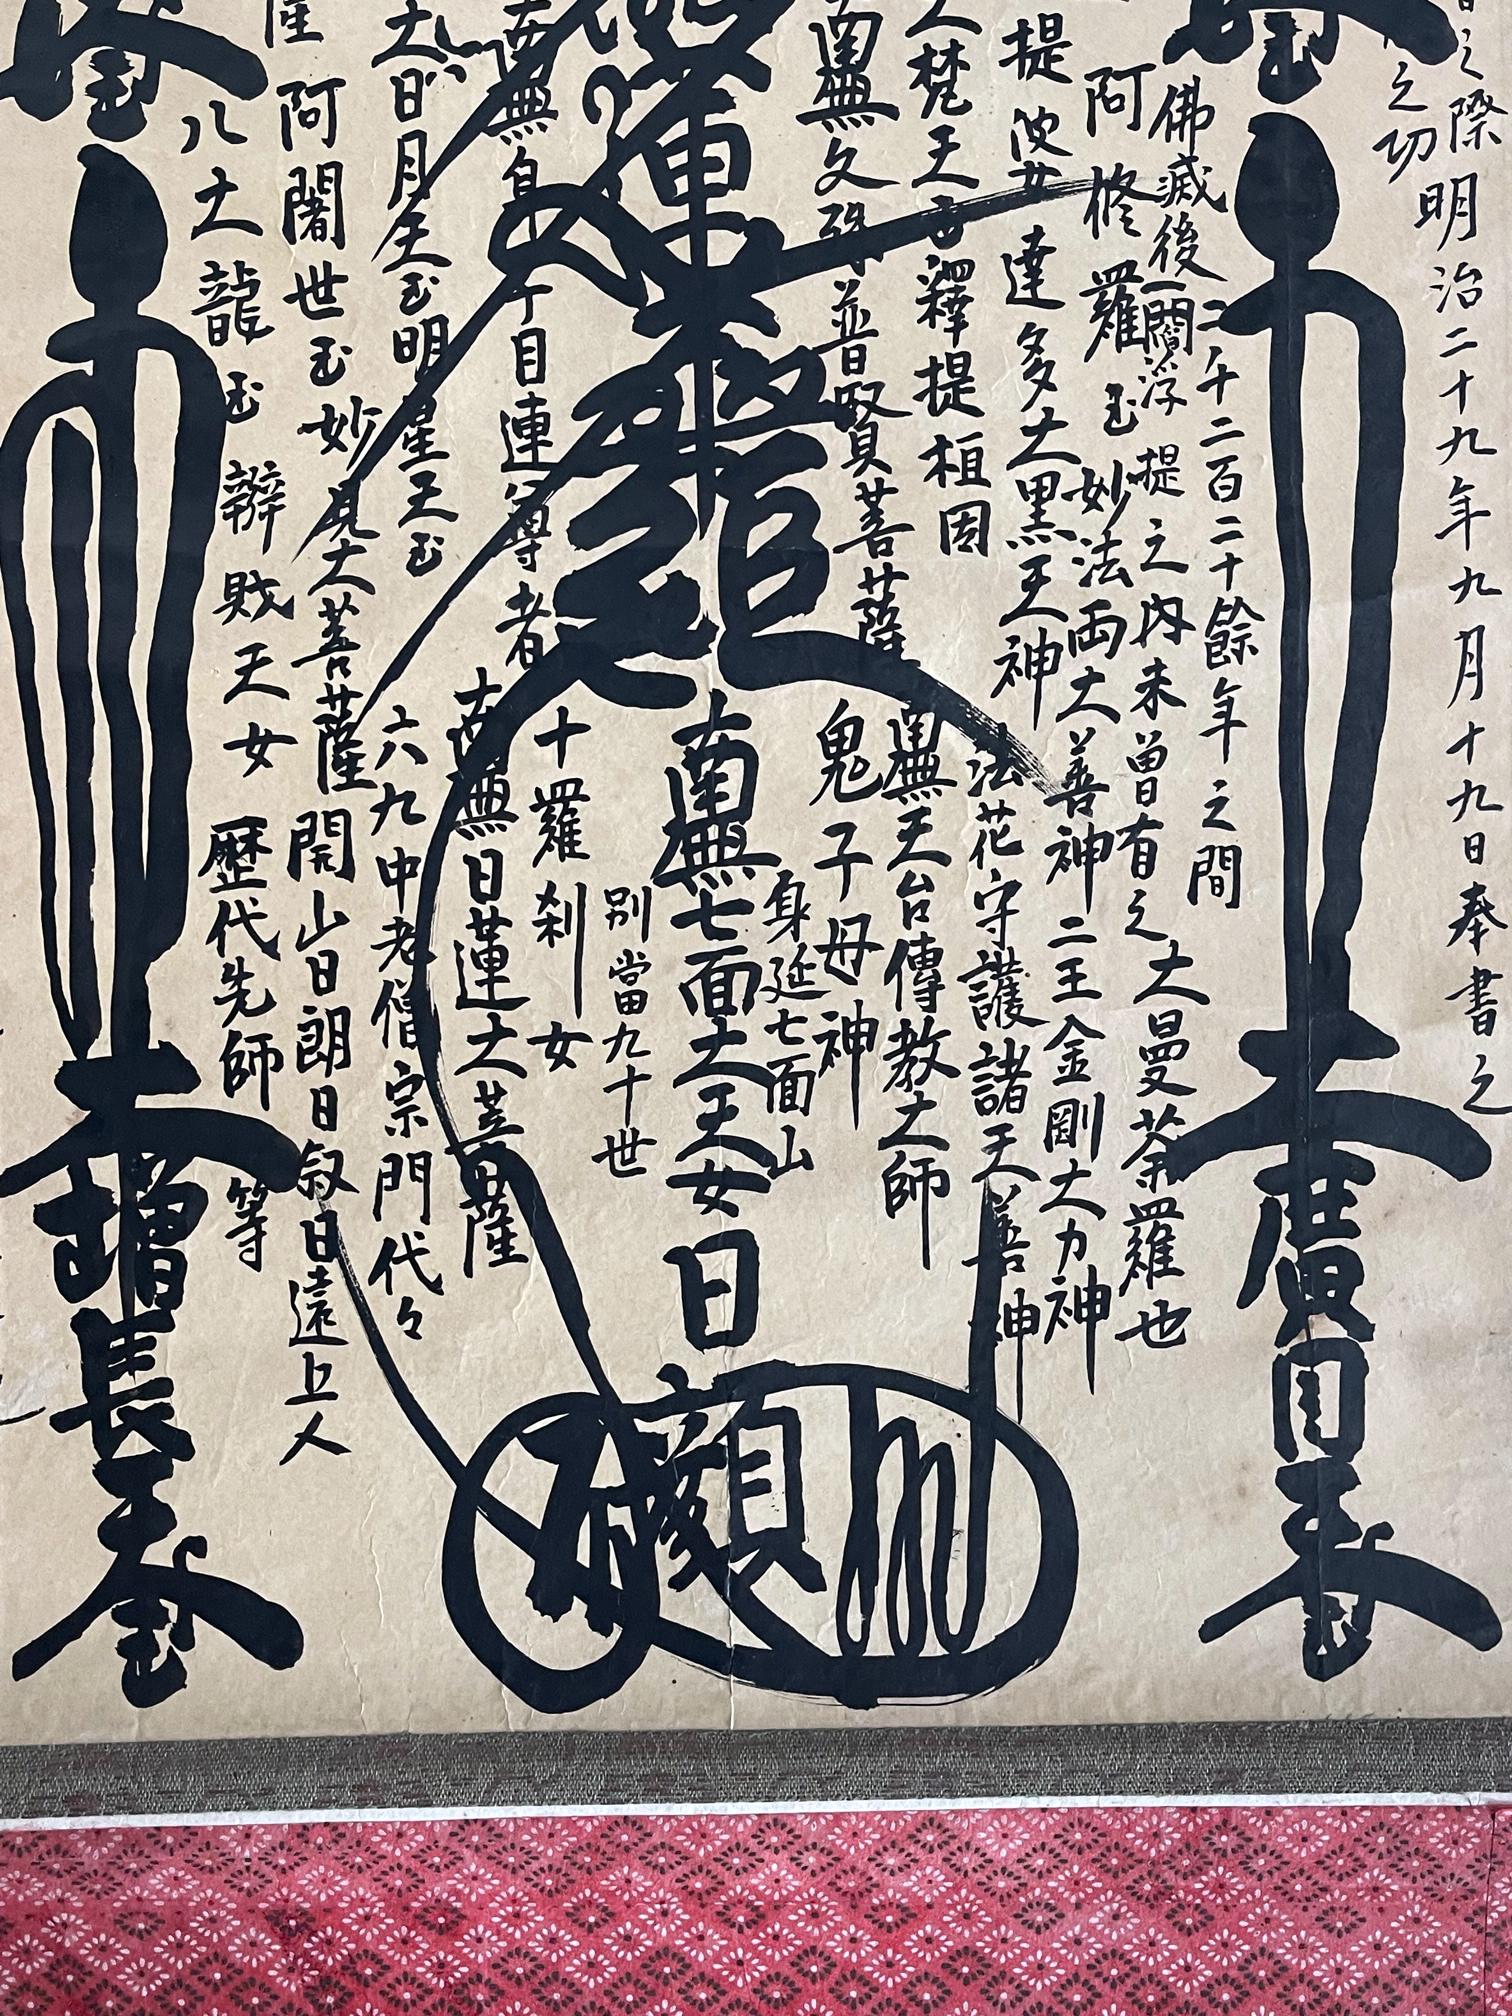 之際
之功
明治二十九年九月十九日奉書之
佛滅後二千二百二十餘年之間
一閻浮提之内未曾有之
大曼荼羅也
廣目天王
阿修羅王
妙法両大善神
二王金剛大力神
提婆達多
大黒天神
法花守護諸天善神
大梵天王
釋提桓因
南無文殊普賢菩薩
南無天台傳教大師
鬼子母神
身延七面山
別當九十世
蓮華經
南無七面大天女
日
十羅刹女
南無身子目連尊者
南無日蓮大菩薩
大日月天王
明星天王
六九中老僧宗門代々
阿闍世王
妙見大菩薩
開山日朗日叙日遠上人
八大龍王
辨財天女
歴代先師
等
増長天王